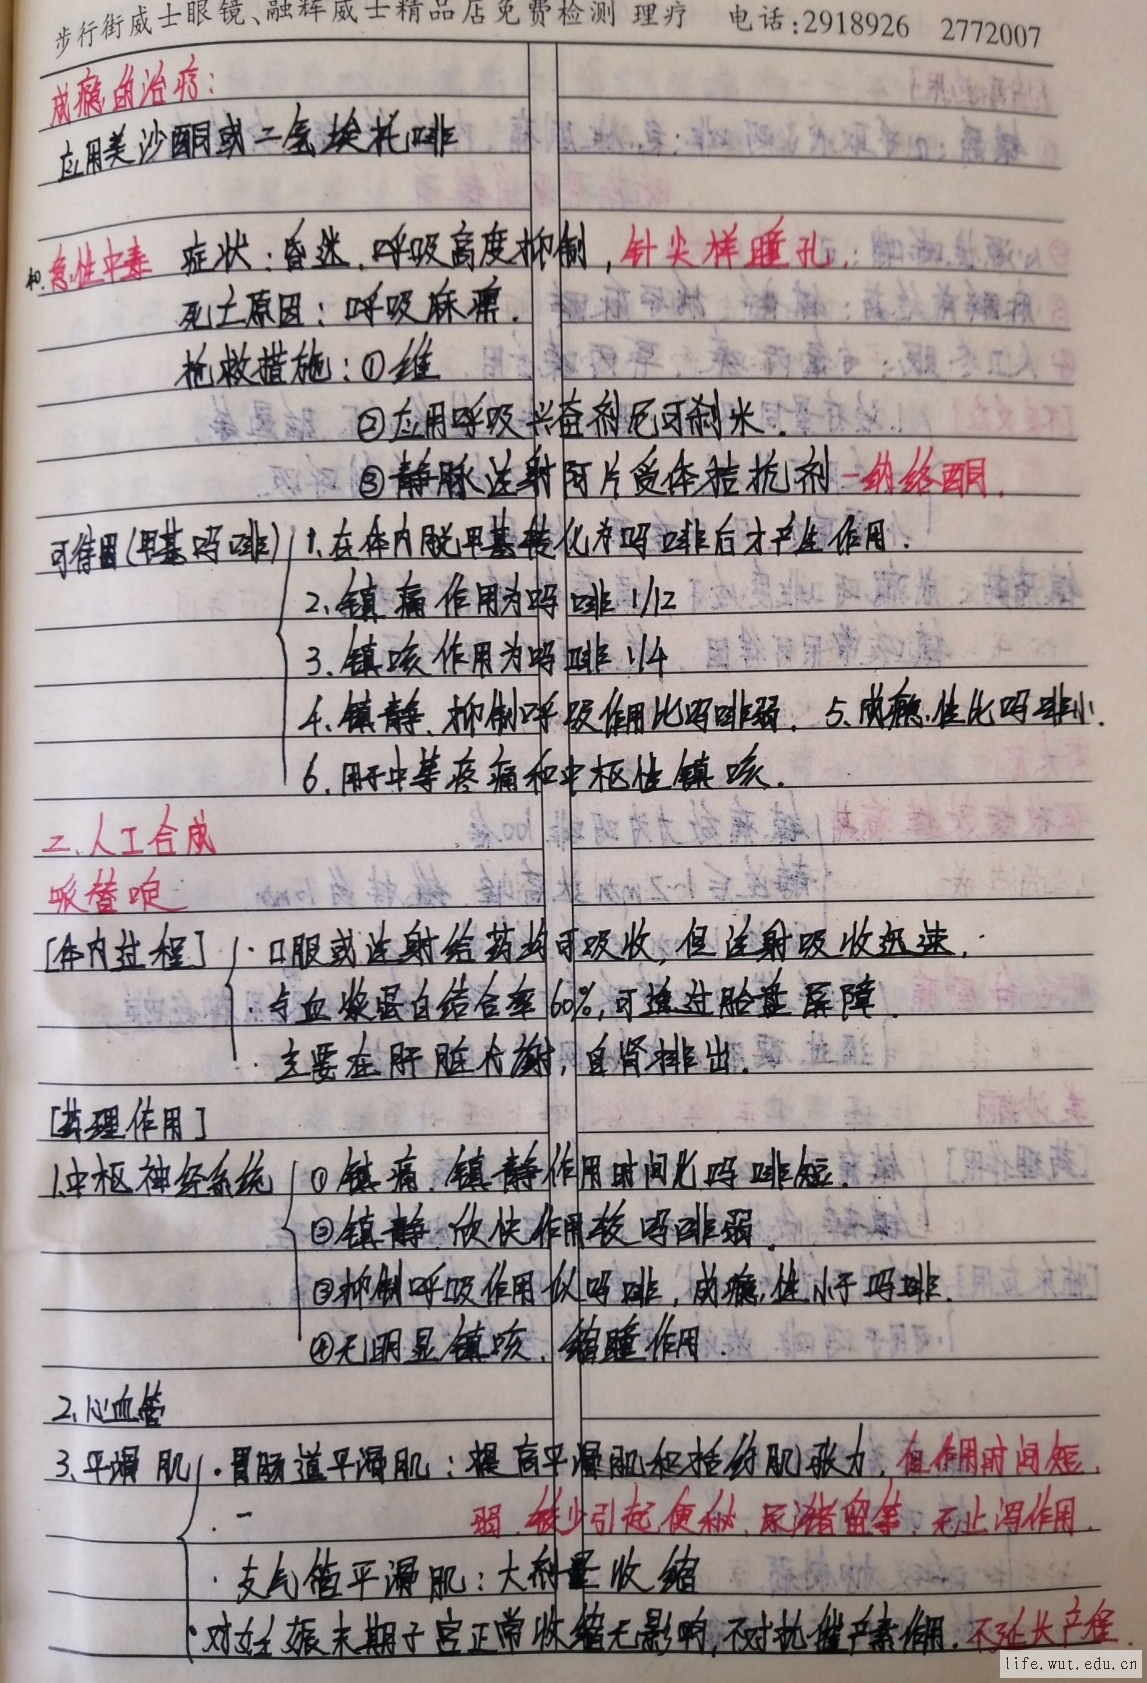 步行街威士眼镜、融辉威士精品店免费检测 理疗 电话:2918926 2772007
成瘾的治疗：
应用美沙酮或二氢埃托啡
急性中毒 症状：昏迷、呼吸高度抑制，针尖样瞳孔.
死亡原因：呼吸麻痹.
抢救措施：①维
②应用呼吸兴奋剂尼可刹米.
③静脉注射阿片受体拮抗剂—纳络酮.
可待因(甲基吗啡) 1.在体内脱甲基转化为吗啡后才产生作用.
2.镇痛作用为吗啡1/12
3.镇咳作用为吗啡1/4
4.镇静、抑制呼吸作用比吗啡弱. 5.成瘾性比吗啡小.
6.用于中等疼痛和中枢性镇咳.
二、人工合成
哌替啶
[体内过程] ·口服或注射给药均可吸收，但注射吸收迅速.
·与血浆蛋白结合率60%，可透过胎盘屏障.
·主要在肝脏代谢，自肾排出.
[药理作用]
1.中枢神经系统 ①镇痛、镇静作用时间比吗啡短.
②镇静、欣快作用较吗啡弱.
③抑制呼吸作用似吗啡，成瘾性小于吗啡.
④无明显镇咳、缩瞳作用.
2.心血管
3.平滑肌 ·胃肠道平滑肌：提高平滑肌和括约肌张力，但作用时间短、
·一 弱、较少引起便秘、尿潴留等，无止泻作用.
·支气管平滑肌：大剂量收缩
·对妊娠末期子宫正常收缩无影响，不对抗催产素作用，不延长产程.
life.wut.edu.cn